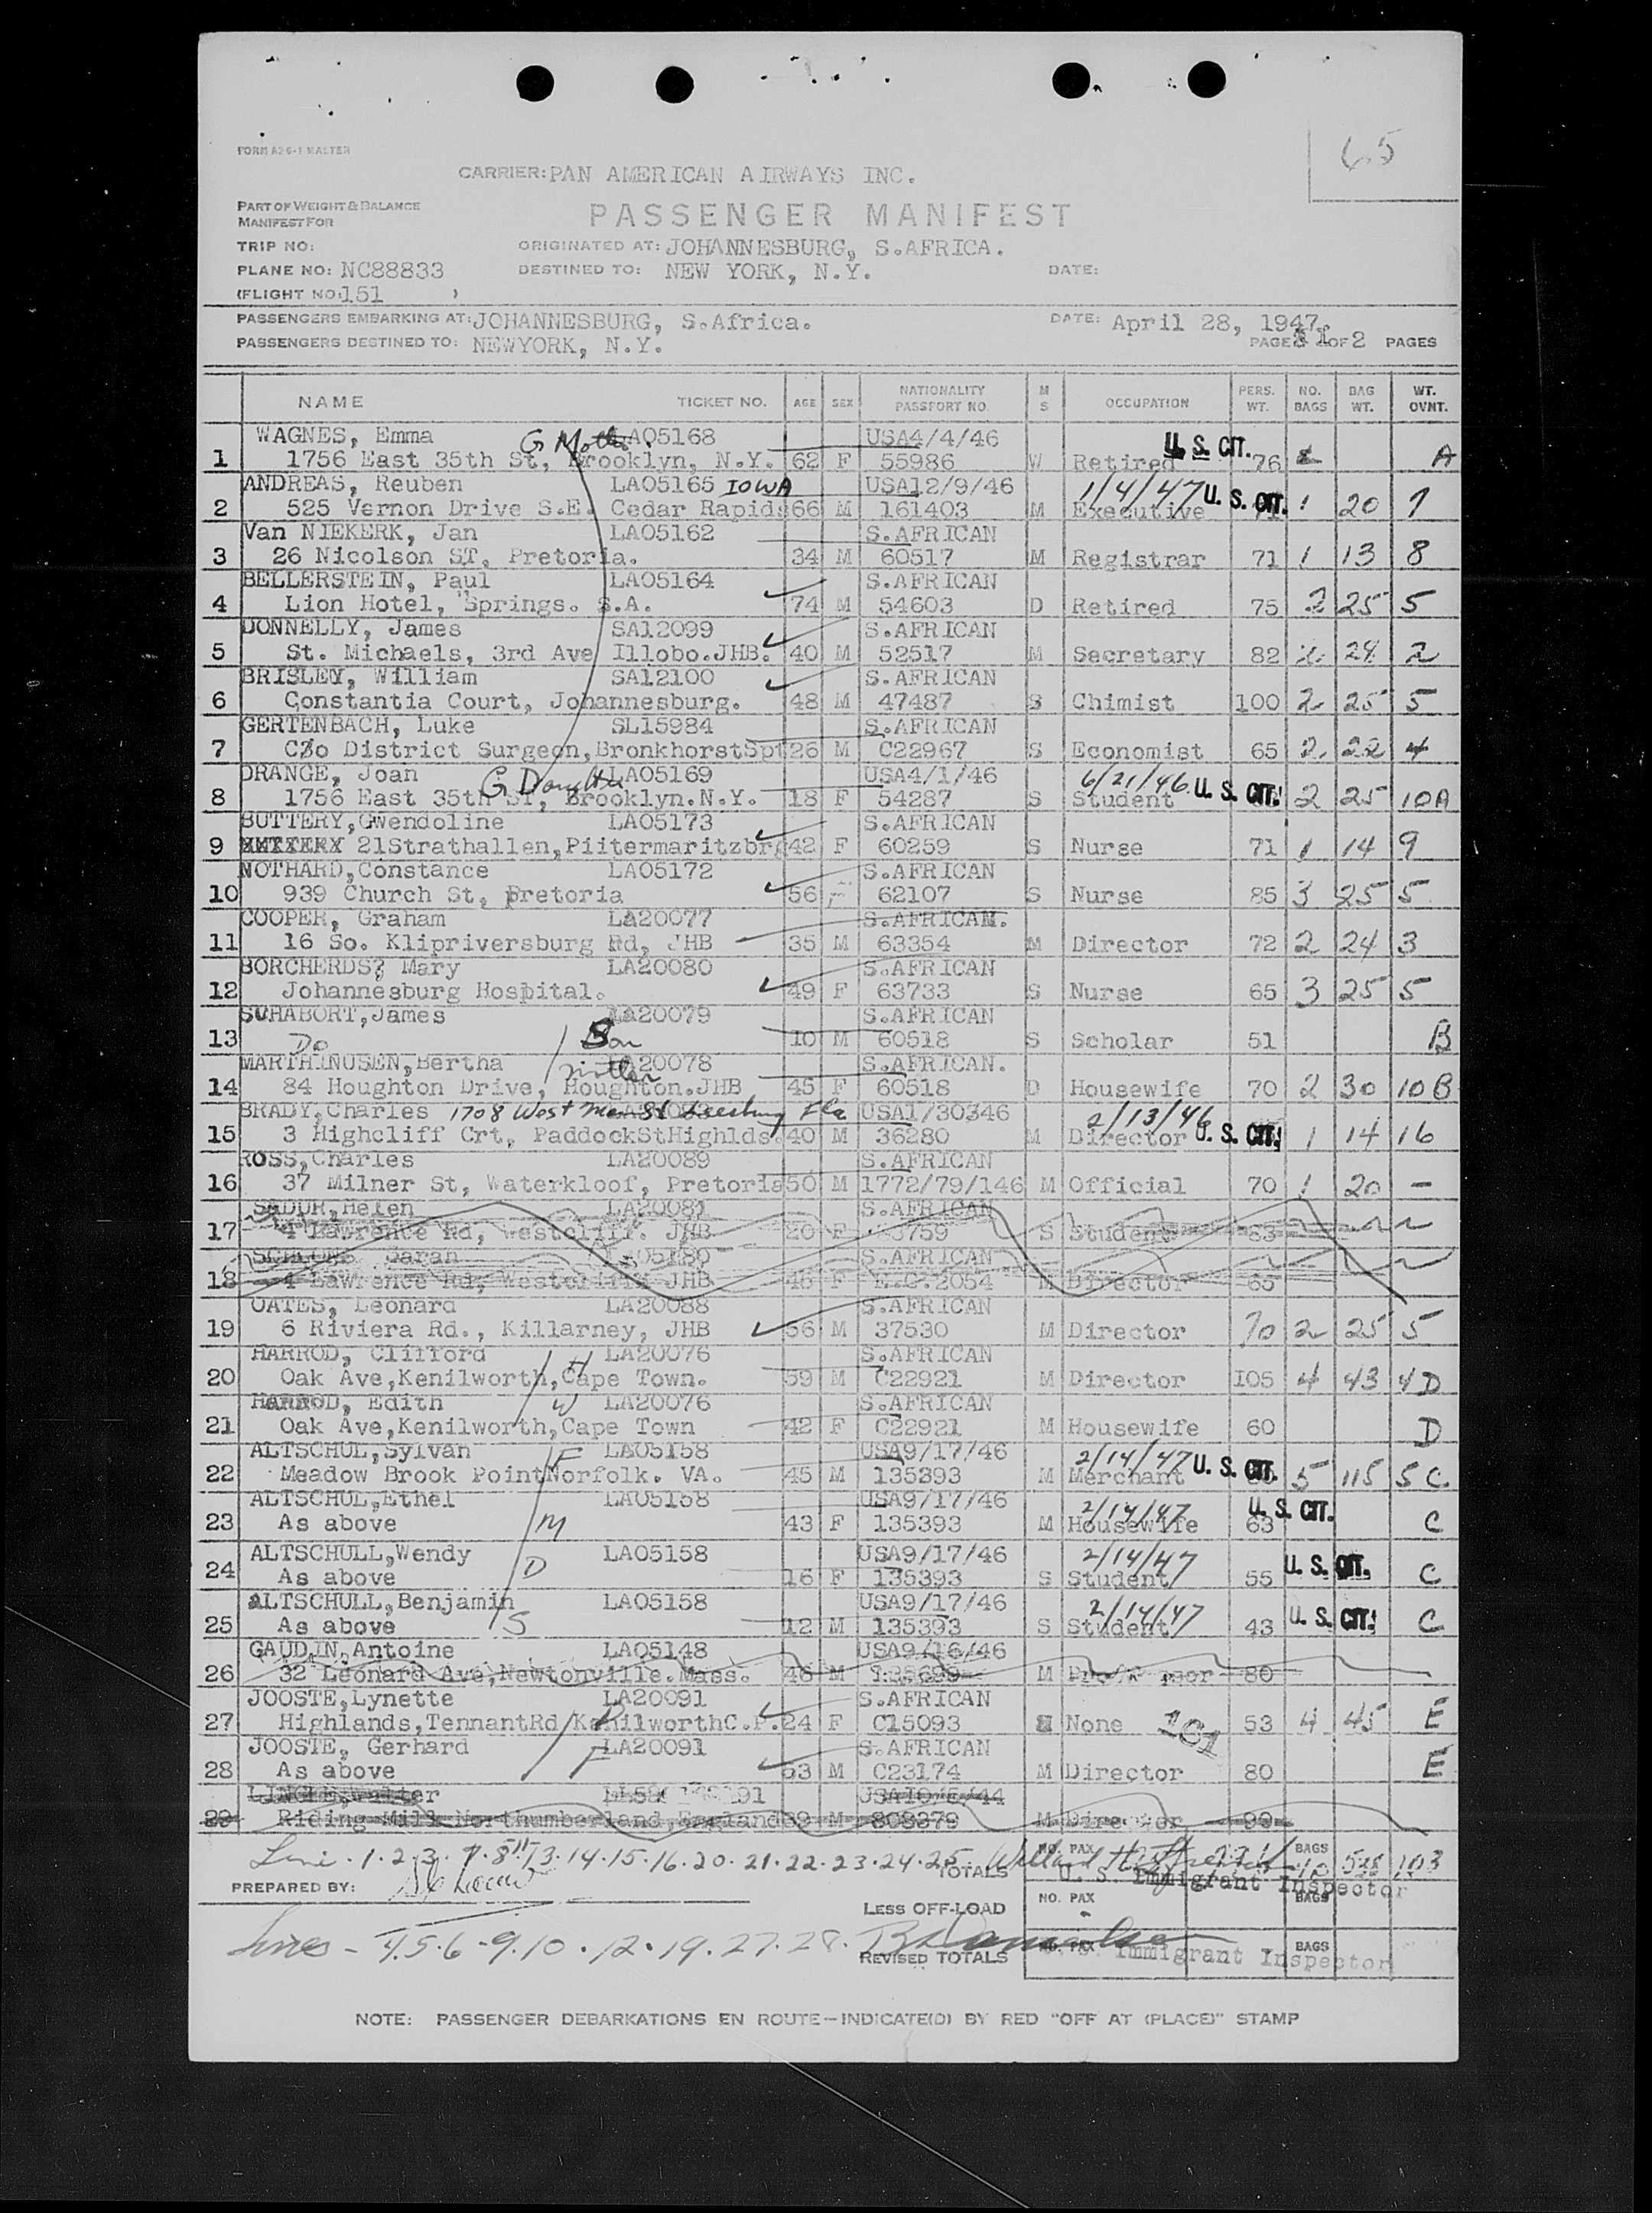 65
FORM A26-1 MASTER
CARRIER: PAN AMERICAN AIRWAYS INC.
PART OF WEIGHT & BALANCE
MANIFEST FOR
PASSENGER MANIFEST
TRIP NO: ORIGINATED AT: JOHANNESBURG, S.AFRICA.
PLANE NO: NC88833 DESTINED TO: NEW YORK, N.Y. DATE:
(FLIGHT NO. 151 )
PASSENGERS EMBARKING AT: JOHANNESBURG, S.Africa. DATE: April 28, 1947.
PASSENGERS DESTINED TO: NEWYORK, N.Y. PAGE 1 OF 2 PAGES
NAME TICKET NO. AGE SEX NATIONALITY PASSPORT NO. M S OCCUPATION PERS. WT. NO. BAGS BAG WT. WT. OVNT.
WAGNES, Emma G Moth LA05168 USA4/4/46 U.S. CIT.
1 1756 East 35th St, Brooklyn, N.Y. 62 F 55986 W Retired 76 A
ANDREAS, Reuben LA05165 IOWA USA12/9/46 1/4/47 U. S. CIT.
2 525 Vernon Drive S.E. Cedar Rapids 66 M 161403 M Executive 71 1 20 7
Van NIEKERK, Jan LA05162 S.AFRICAN
3 26 Nicolson ST, Pretoria. 34 M 60517 M Registrar 71 1 13 8
BELLERSTEIN, Paul LA05164 S.AFRICAN
4 Lion Hotel, Springs. S.A. 74 M 54603 D Retired 75 2 25 5
DONNELLY, James SA12099 S.AFRICAN
5 St. Michaels, 3rd Ave Illobo.JHB. 40 M 52517 M Secretary 82 2 28 2
BRISLEY, William SA12100 S.AFRICAN
6 Constantia Court, Johannesburg. 48 M 47487 S Chimist 100 2 25 5
GERTENBACH, Luke SL15984 S.AFRICAN
7 C/o District Surgeon, BronkhorstSpt 26 M C22967 S Economist 65 2 22 4
DRANGE, Joan G Daughter LA05169 USA4/1/46 6/21/46
8 1756 East 35th ST, Brooklyn.N.Y. 18 F 54287 S Student U. S. CIT. 2 25 10A
BUTTERY,Gwendoline LA05173 S.AFRICAN
9 21Strathallen,Piitermaritzbrg 42 F 60259 S Nurse 71 1 14 9
NOTHARD,Constance LA05172 S.AFRICAN
10 939 Church St, pretoria 56 F 62107 S Nurse 85 3 25 5
COOPER, Graham LA20077 S.AFRICAN.
11 16 So. Klipriversburg Rd, JHB 35 M 63354 M Director 72 2 24 3
BORCHERDS? Mary LA20080 S.AFRICAN
12 Johannesburg Hospital. 49 F 63733 S Nurse 65 3 25 5
SCHABORT,James LA20079 S.AFRICAN
13 Do Son 10 M 60518 S Scholar 51 B
MARTHINUSEN,Bertha LA20078 S.AFRICAN.
14 84 Houghton Drive, Houghton.JHB 45 F 60518 D Housewife 70 2 30 10B
BRADY,Charles 1708 West Main St Leesburg Fla USA1/30346 2/13/46
15 3 Highcliff Crt, PaddockStHighlds. 40 M 36280 M Director U. S. CIT. 1 14 16
ROSS,Charles LA20089 S.AFRICAN
16 37 Milner St, Waterkloof, Pretoria 50 M 1772/79/146 M Official 70 1 20 -
SADUR,Helen LA20081 S.AFRICAN
17 4 Lawrence Rd, Westcliff. JHB 20 F 3759 S Student 63
Sarah S.AFRICAN
18 4 Lawrence Rd, Westcliff JHB 46 F 2054 M Director 65
OATES, Leonard LA20088 S.AFRICAN
19 6 Riviera Rd., Killarney, JHB 56 M 37530 M Director 70 2 25 5
HARROD, Clifford H LA20076 S.AFRICAN
20 Oak Ave,Kenilworth,Cape Town. 59 M C22921 M Director 105 4 43 4D
HARROD, Edith W LA20076 S.AFRICAN
21 Oak Ave,Kenilworth,Cape Town 42 F C22921 M Housewife 60 D
ALTSCHUL,Sylvan F LA05158 USA9/17/46 2/14/47
22 Meadow Brook PointNorfolk. VA. 45 M 135393 M Merchant U. S. CIT. 5 115 5 C.
ALTSCHUL,Ethel LA05158 USA9/17/46 2/14/47 U. S. CIT.
23 As above M 43 F 135393 M Housewife 63 C
ALTSCHULL,Wendy LA05158 USA9/17/46 2/14/47
24 As above D 16 F 135393 S Student 55 U. S. CIT. C
ALTSCHULL,Benjamin LA05158 USA9/17/46 2/14/47
25 As above S 12 M 135393 S Student 43 U. S. CIT. C
GAUDIN,Antoine LA05148 USA9/16/46
26 32 Leonard Ave,Newtonville.Mass. 46 M M 80
JOOSTE,Lynette LA20091 S.AFRICAN
27 Highlands,TennantRd KenilworthC.P. D 24 F C15093 None 161 53 4 45 E
JOOSTE, Gerhard LA20091 S.AFRICAN
28 As above F 63 M C23174 M Director 80 E
29 Riding Mill Northumberland,England 39 M 808379 M Director 90
Line . 1 . 2 . 3 . 7 . 8 11 13 . 14 . 15 . 16 . 20 . 21 . 22 . 23 . 24 . 25
TOTALS NO. PAX BAGS 40 103
U. S. Immigrant Inspector
PREPARED BY:
LESS OFF-LOAD NO. PAX BAGS
Lines - 4.5.6.9.10.12.19.27.28.
REVISED TOTALS NO. PAX BAGS
Immigrant Inspector
NOTE: PASSENGER DEBARKATIONS EN ROUTE-INDICATE(D) BY RED "OFF AT (PLACE)" STAMP